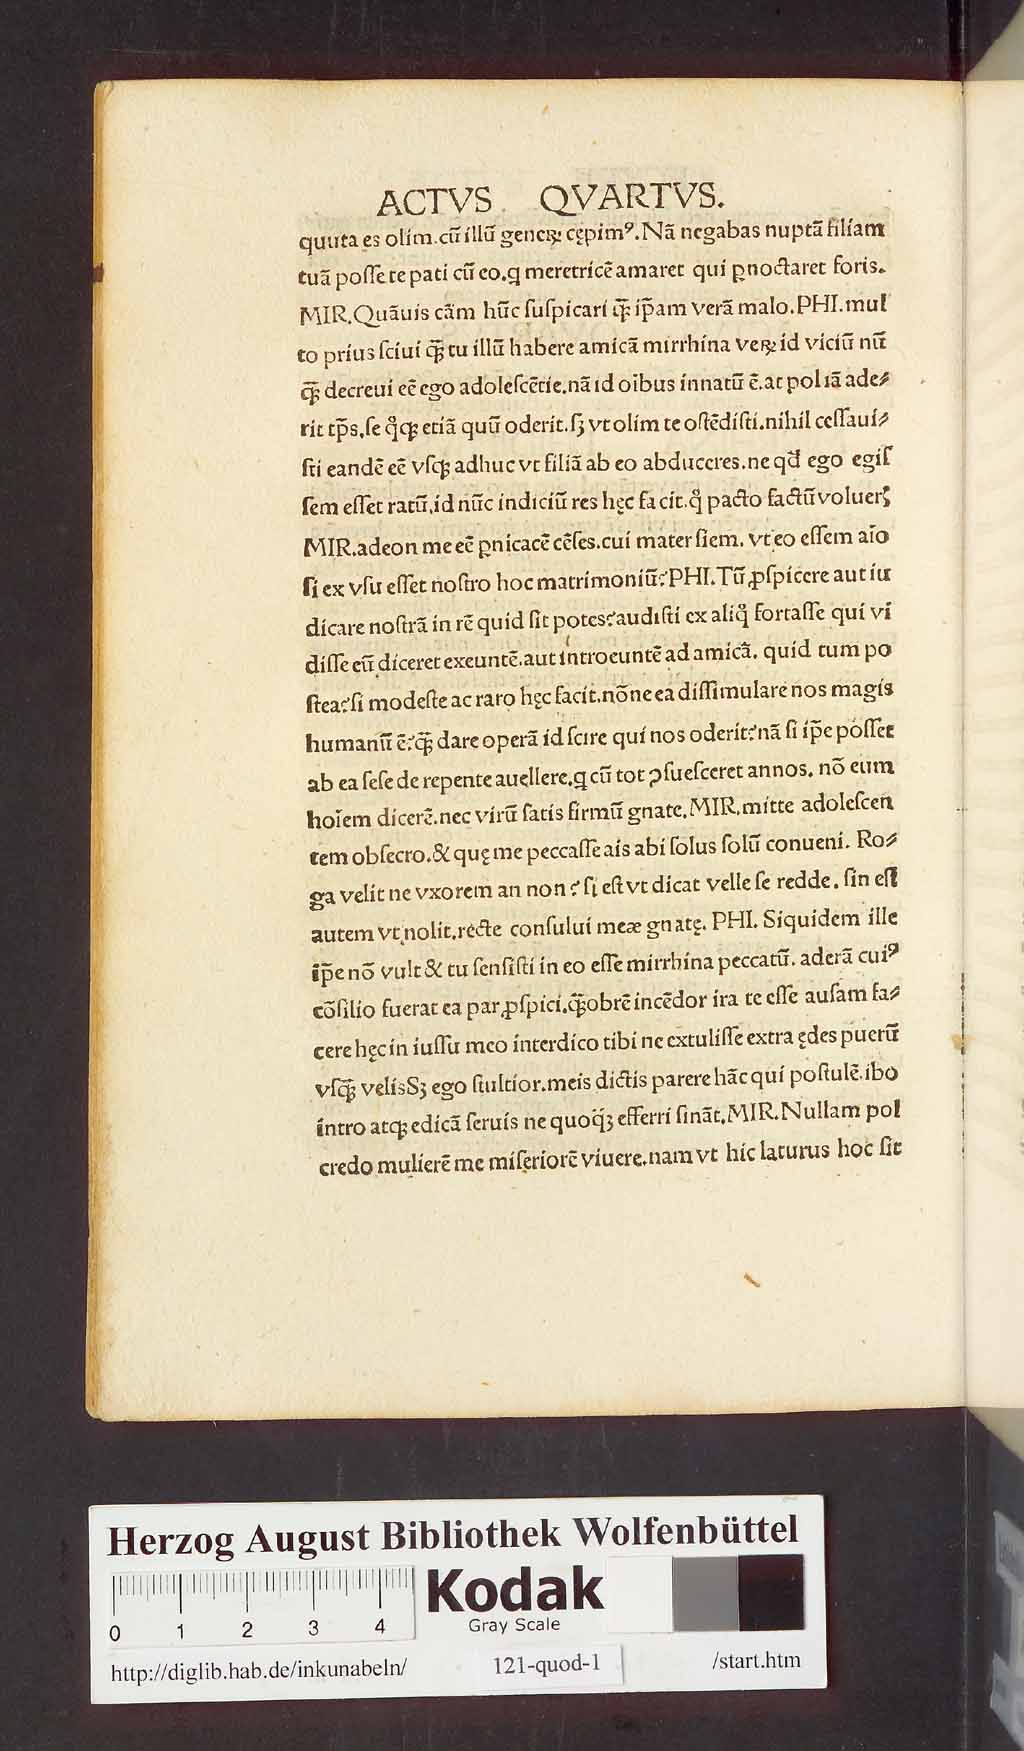 ACTVS QVARTVS.
quuta es olim.cū illū geneꝝ cępimꝰ.Nā negabas nuptā filiam
tuā poſſe te pati cū eo.q meretricē amaret qui ꝑnoctaret foris.
MIR.Quāuis cām hūc ſuſpicari qȝ̄ ip̄am verā malo.PHI.mul
to prius ſciui qȝ̄ tu illū habere amicā mirrhina veꝝ id viciū nū
qȝ̄ decreui eē ego adoleſcētie.nā id oībus innatū ē.at pol iā ade⸗
rit tp̄s.ſe qͦqȝ etiā quū oderit.ſȝ vt olim te oſtēdiſti.nihil ceſſaui⸗
ſti eandē eē vſqȝ adhuc vt filiā ab eo abduceres.ne qd̄ ego egiſ
ſem eſſet ratū.id nūc indiciū res hęc facit.qͦ pacto factū voluerꝭ
MIR.adeon me eē ꝑnicacē cēſes.cui mater ſiem. vt eo eſſem aīo
ſi ex vſu eſſet noſtro hoc matrimoniū?PHI.Tū ꝓſpicere aut iu
dicare noſtrā in rē quid ſit potes?audiſti ex aliqͦ fortaſſe qui vi
diſſe eū diceret exeuntē.aut introeuntē ad amicā. quid tum po
ſtea?ſi modeſte ac raro hęc facit.nōne ea diſſimulare nos magis
humanū ē?qȝ̄ dare operā id ſcire qui nos oderit?nā ſi ip̄e poſſet
ab ea ſeſe de repente auellere.q cū tot ꝯſueſceret annos. nō eum
hoīem dicerē.nec virū ſatis firmū gnate.MIR.mitte adoleſcen
tem obſecro.& quę me peccaſſe ais abi ſolus ſolū conueni. Ro⸗
ga velit ne vxorem an non? ſi eſt vt dicat velle ſe redde. ſin eſt
autem vt nolit.recte conſului meæ gnatę. PHI. Siquidem ille
ip̄e nō vult & tu ſenſiſti in eo eſſe mirrhina peccatū. aderā cuiꝰ
cōſilio fuerat ea par ꝓſpici.qȝ̄obrē incēdor ira te eſſe auſam fa⸗
cere hęc in iuſſu meo interdico tibi ne extuliſſe extra ędes puerū
vſqȝ̄ velis Sȝ ego ſtultior.meis dictis parere hāc qui poſtulē.ibo
intro atqȝ edicā ſeruis ne quoqȝ̄ efferri ſināt.MIR.Nullam pol
credo mulierē me miſeriorē viuere.nam vt hic laturus hoc ſit
Herzog August Bibliothek Wolfenbüttel
0 1 2 3 4
Kodak
Gray Scale
http://diglib.hab.de/inkunabeln/ 121-quod-1 /start.htm